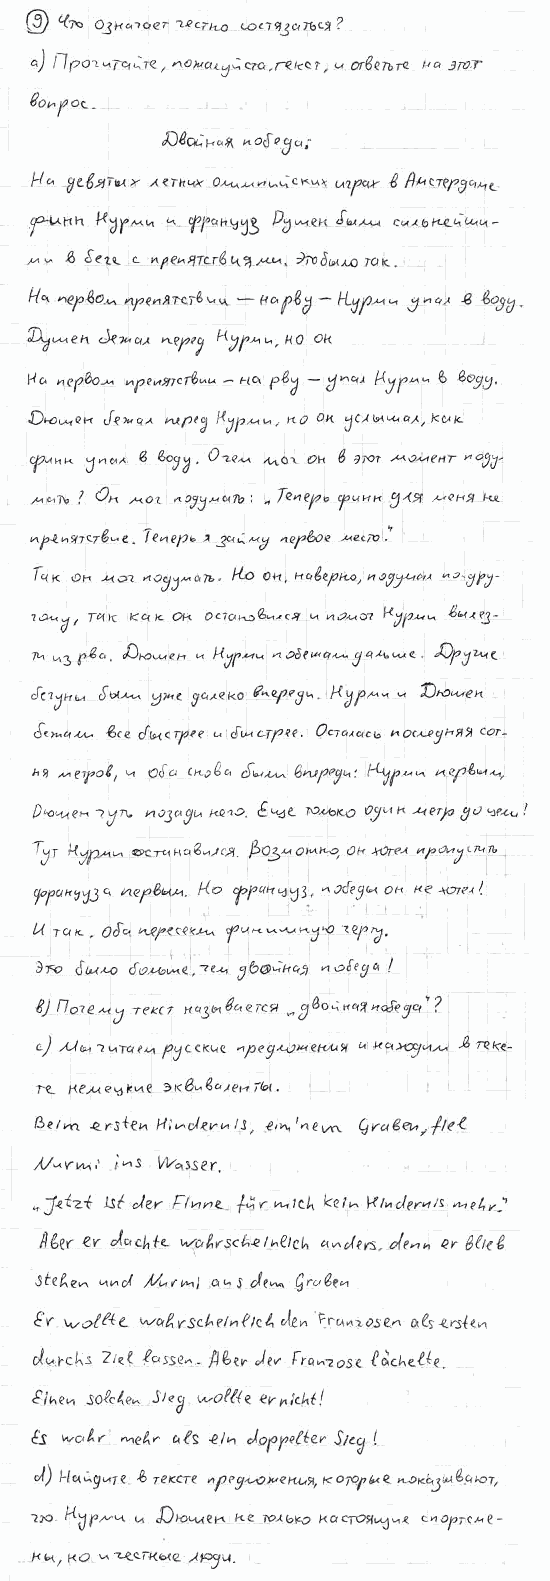 ⑨ Что означает честно состязаться?
а) Прочитайте, пожалуйста, текст, и ответьте на этот
вопрос.
Двойная победа.
На девятых летних олимпийских играх в Амстердаме
финн Нурми и француз Душен были сильнейши-
ми в беге с препятствиями. Это было так.
На первом препятствии – на рву – Нурми упал в воду.
Душен бежал перед Нурми, но он
На первом препятствии – на рву – упал Нурми в воду.
Дюшен бежал перед Нурми, но он услышал, как
финн упал в воду. О чем мог он в этот момент поду-
мать? Он мог подумать: „Теперь финн для меня не
препятствие. Теперь я займу первое место."
Так он мог подумать. Но он, наверно, подумал по-дру-
гому, так как он остановился и помог Нурми вылез-
ти из рва. Дюшен и Нурми побежали дальше. Другие
бегуны были уже далеко впереди. Нурми и Дюшен
бежали все быстрее и быстрее. Осталась последняя сот-
ня метров, и оба снова были впереди: Нурми первым,
Дюшен чуть позади него. Еще только один метр до цели!
Тут Нурми останавился. Возможно, он хотел пропустить
француза первым. Но француз, победы он не хотел!
И так. Оба пересекли финишную черту.
Это было больше, чем двойная победа!
в) Почему текст называется „двойная победа"?
с) Мы читаем русские предложения и находим в текс-
те немецкие эквиваленты.
Beim ersten Hindernis, ein'nem Graben, fiel
Nurmi ins Wasser.
„Jetzt ist der Finne für mich kein Hindernis mehr."
Aber er dachte wahrscheinlich anders, denn er blieb
stehen und Nurmi aus dem Graben
Er wollte wahrscheinlich den Franzosen als ersten
durchs Ziel lassen. Aber der Franzose lächelte.
Einen solchen Sieg wollte er nicht!
Es wahr mehr als ein doppelter Sieg!
d) Найдите в тексте предложения, которые показывают,
что Нурми и Дюшен не только настоящие спортсме-
ны, но и честные люди.